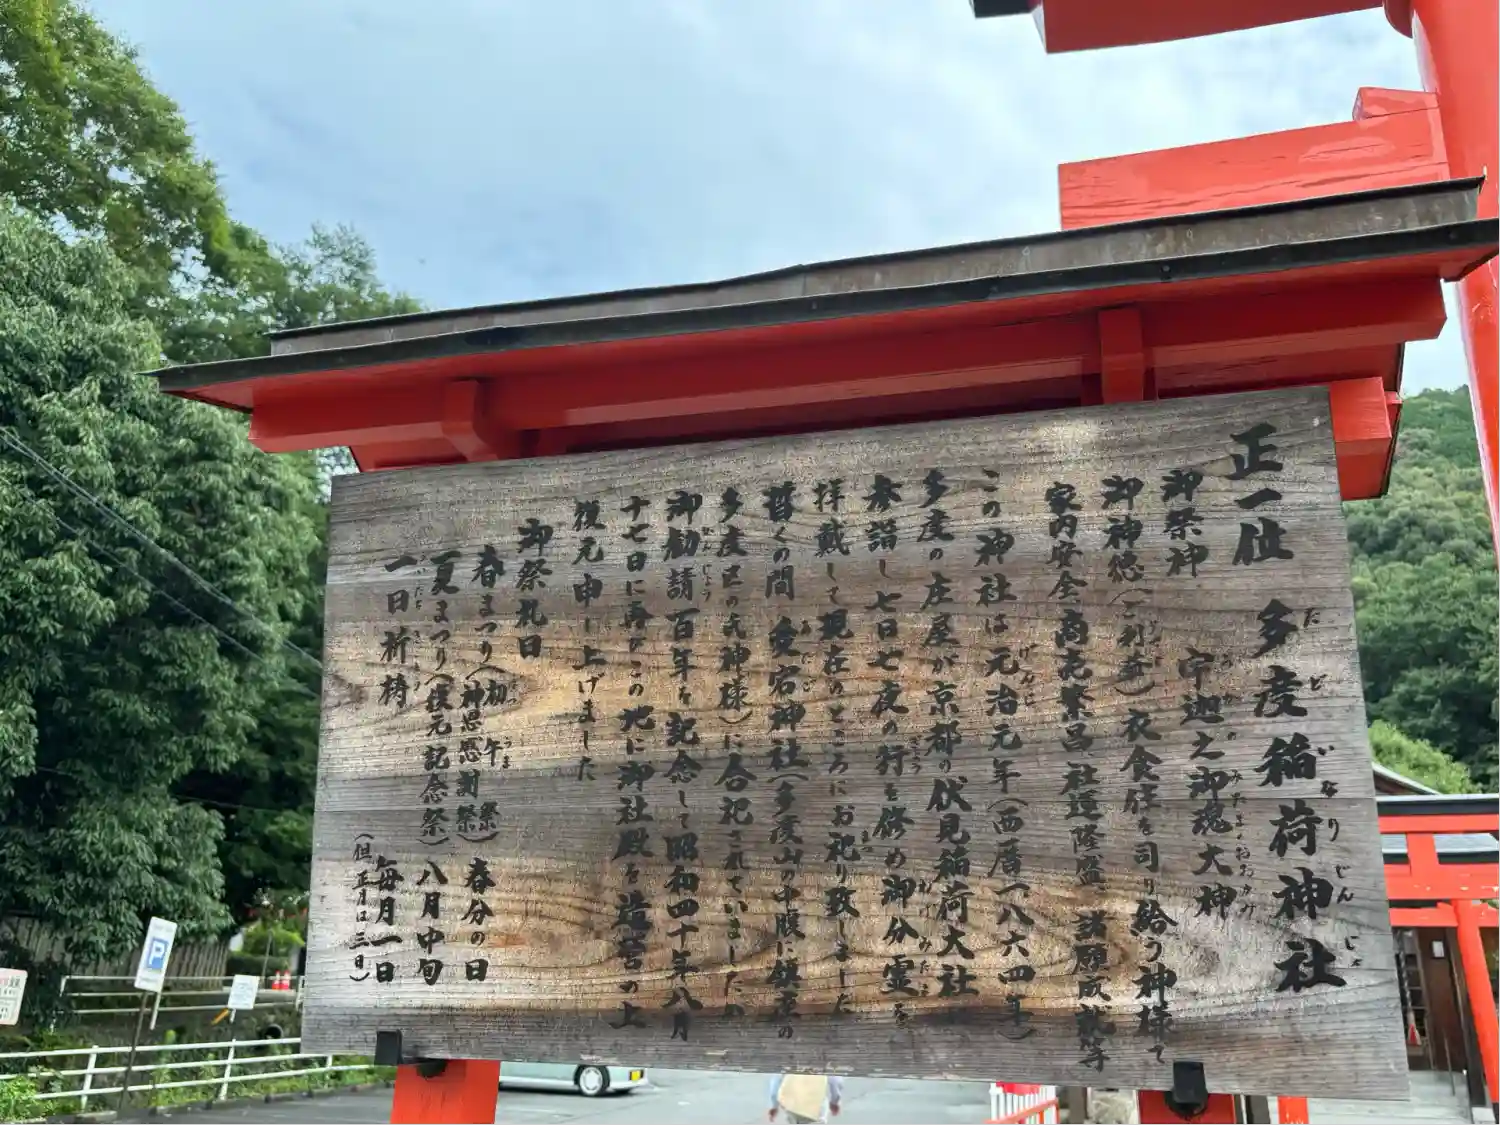 正一位 多度稲荷神社
御祭神 宇迦之御魂大神
御神徳(ご利益)衣食住を司り給う神様で
家内安全 商売繁昌 社運隆盛 諸願成就等
この神社は元治元年(西暦一八六四年)
多度の庄屋が京都の伏見稲荷大社
参詣し七日七夜の行を修め御分霊を
拝戴して現在のところにお祀り致しました
暫くの間 愛宕神社(多度山の中腹に鎮座の
多度区の氏神様)に合祀されていましたが
御勧請百年を記念して昭和四十年八月
十七日に再びこの地に御社殿を造営の上
復元申し上げました
御祭礼日
春まつり(初午祭 神恩感謝祭)春分の日
夏まつり(復元記念祭)八月中旬
一日祈祷 毎月一日
(但 正月は三日)
P